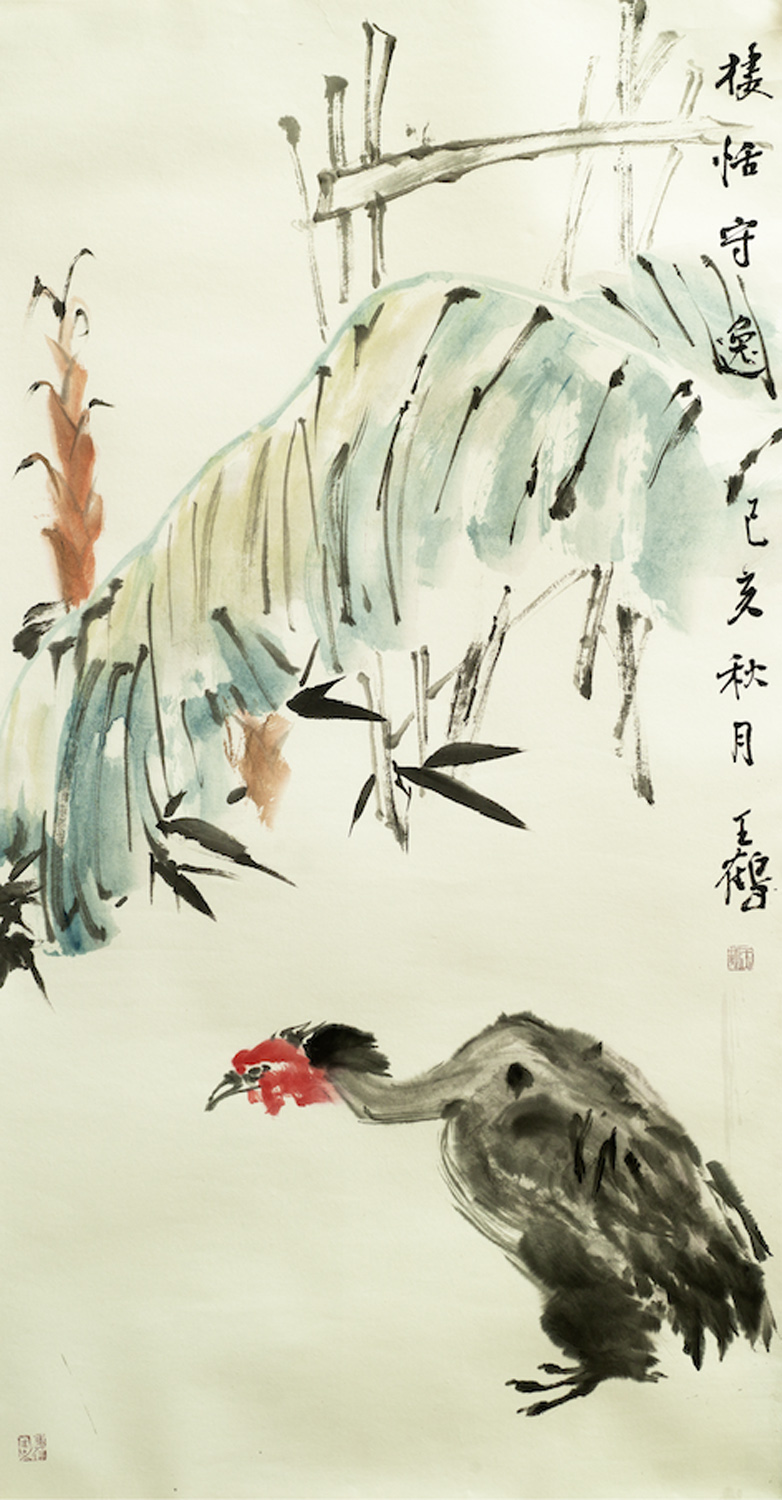 棲恬守逸 己亥秋月 王鶴